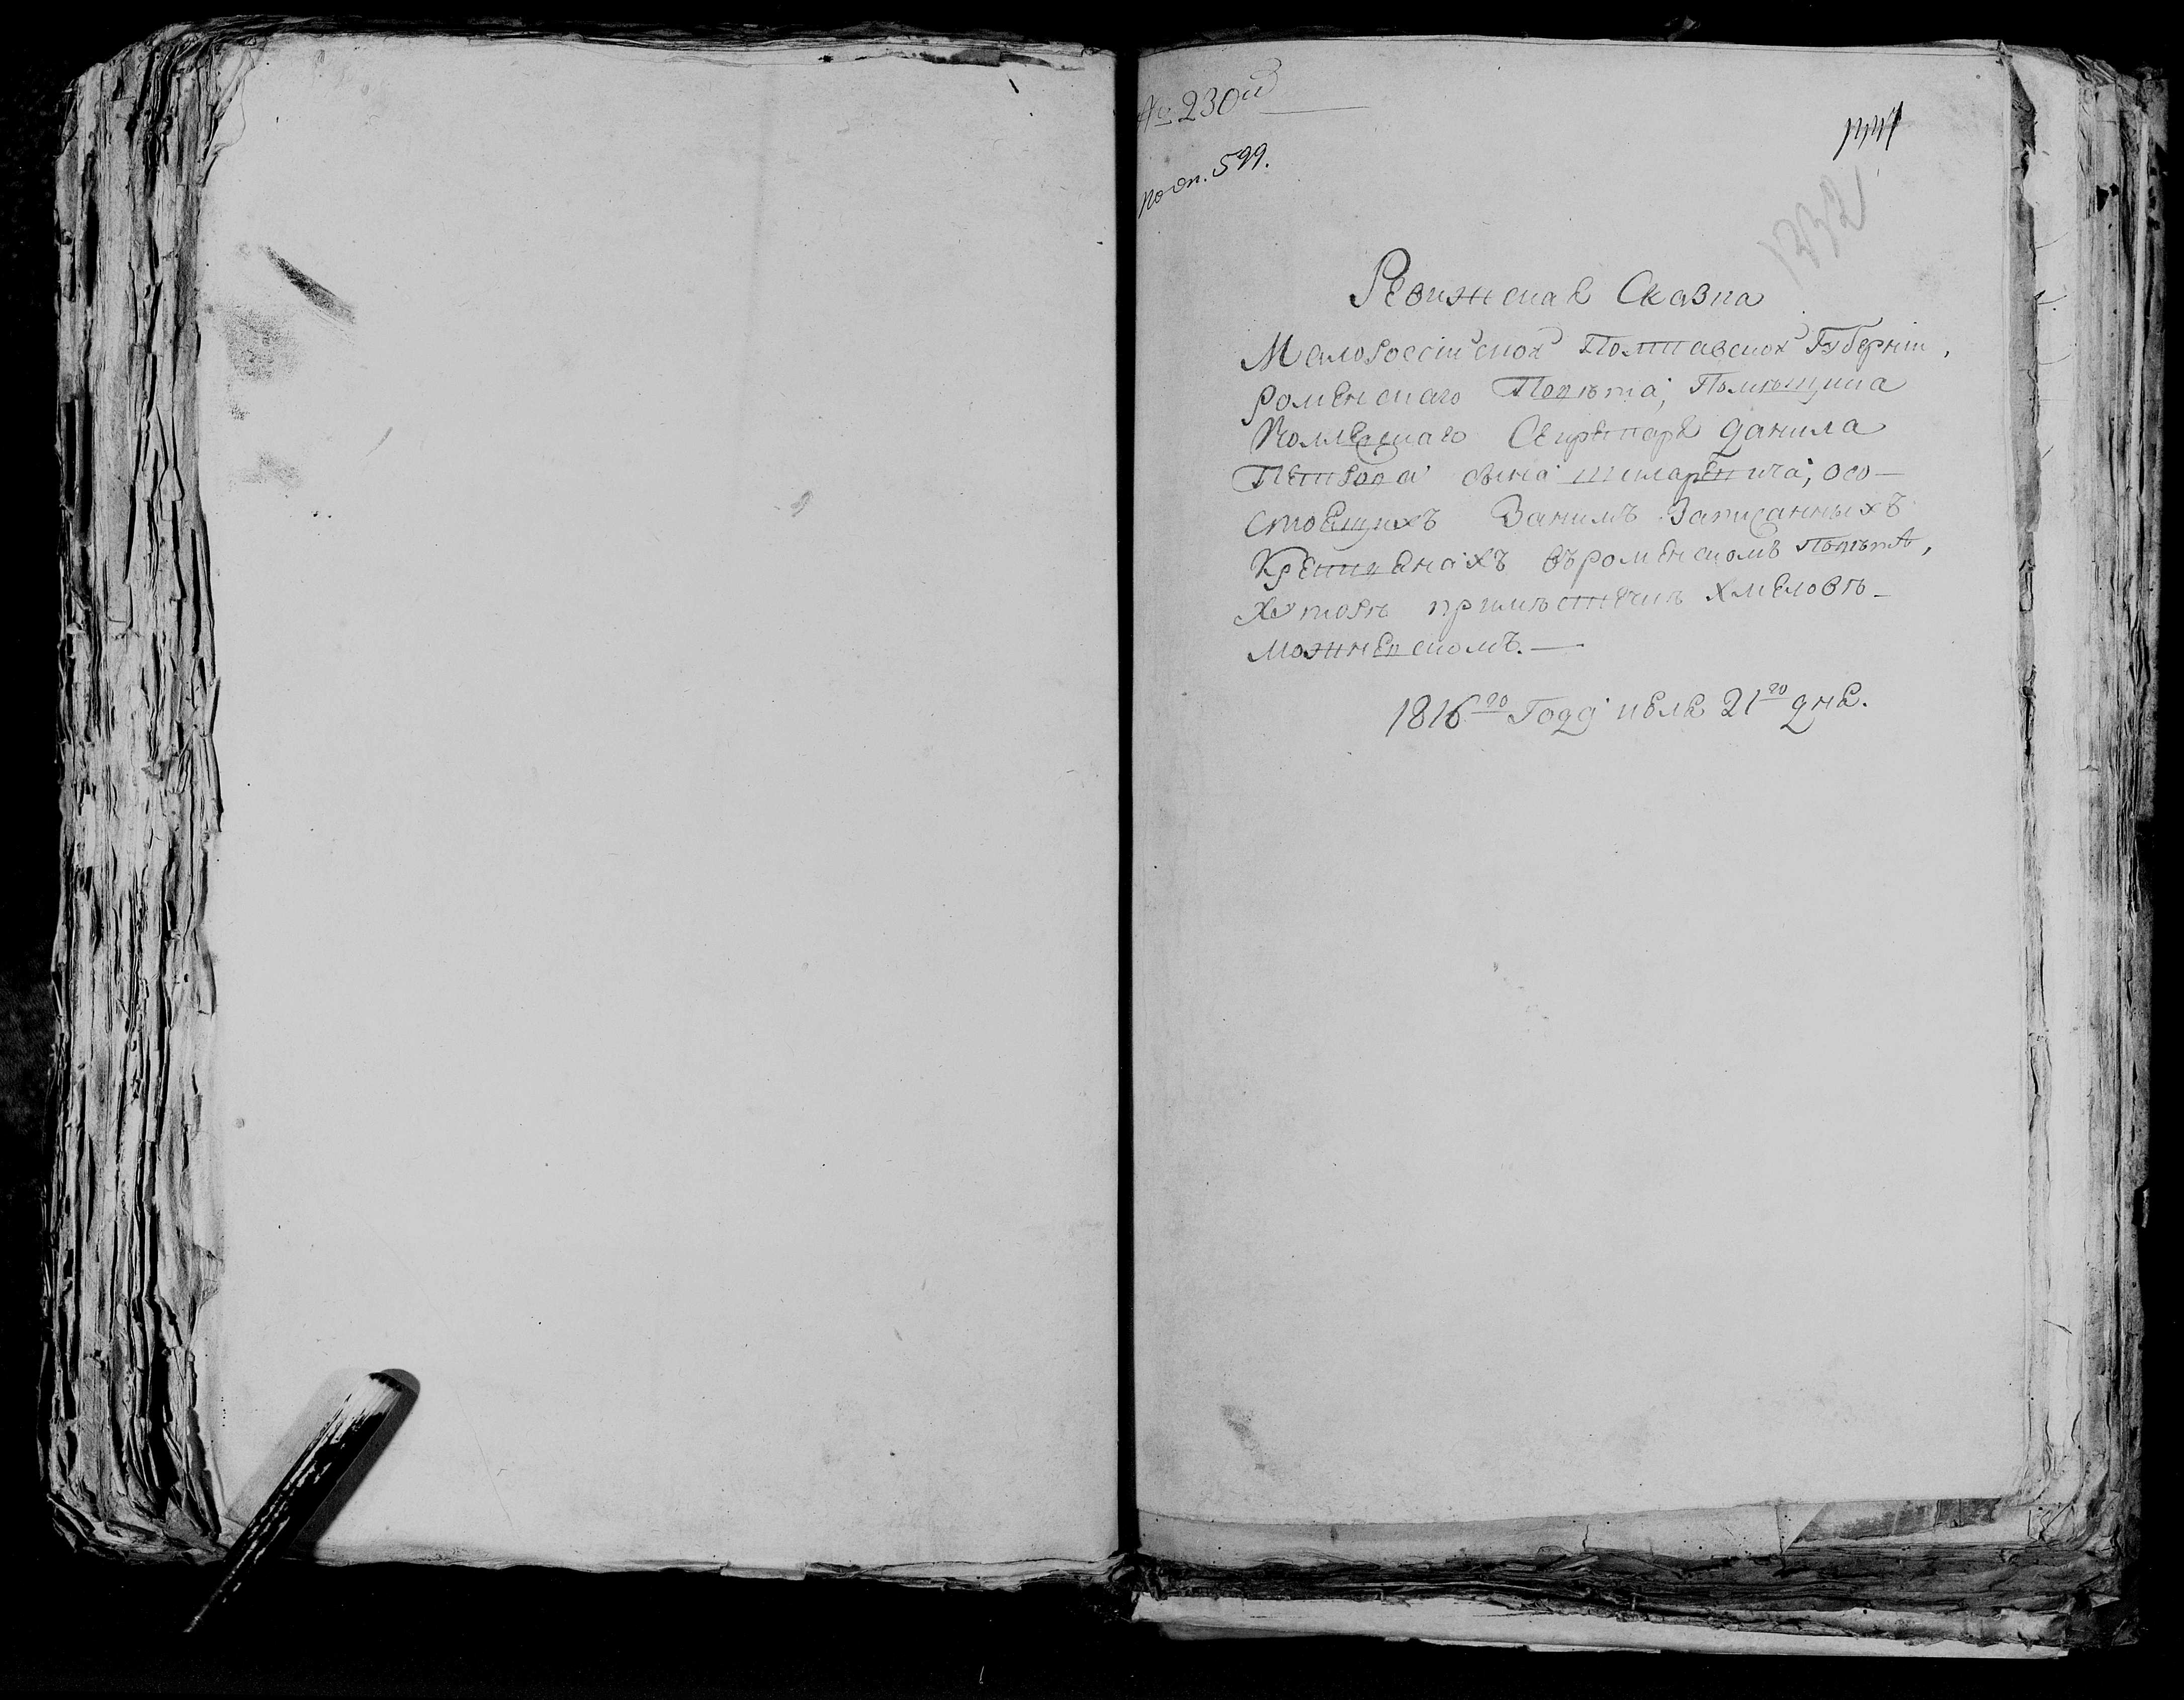 № 230й
по оп. 599.
1232
Ревижская Сказка
Малороссійской Полтавской Губерніи,
роменского Повѣта, Помѣщика
Коллежскаго Секретаря данила
Петрова сына шкларевича, осо-
стоящихъ Занимъ Записанныхъ
Крестянахъ въроменскомъ Повѣтѣ,
Хуторѣ примѣстечкѣ Хмеловѣ-
1816го Году июля 21го дня.